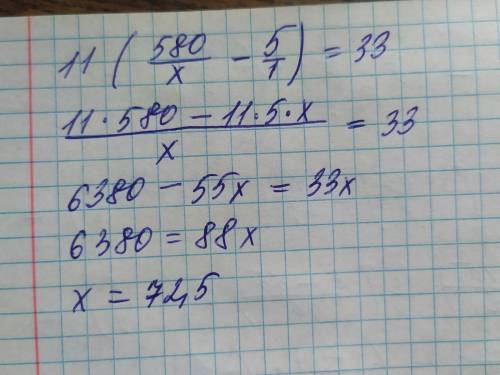 11 ( 580/x − 5/1 ) = 33
(11·580 − 11·5·x)/x = 33
6380 − 55x = 33x
6380 = 88x
x = 72,5